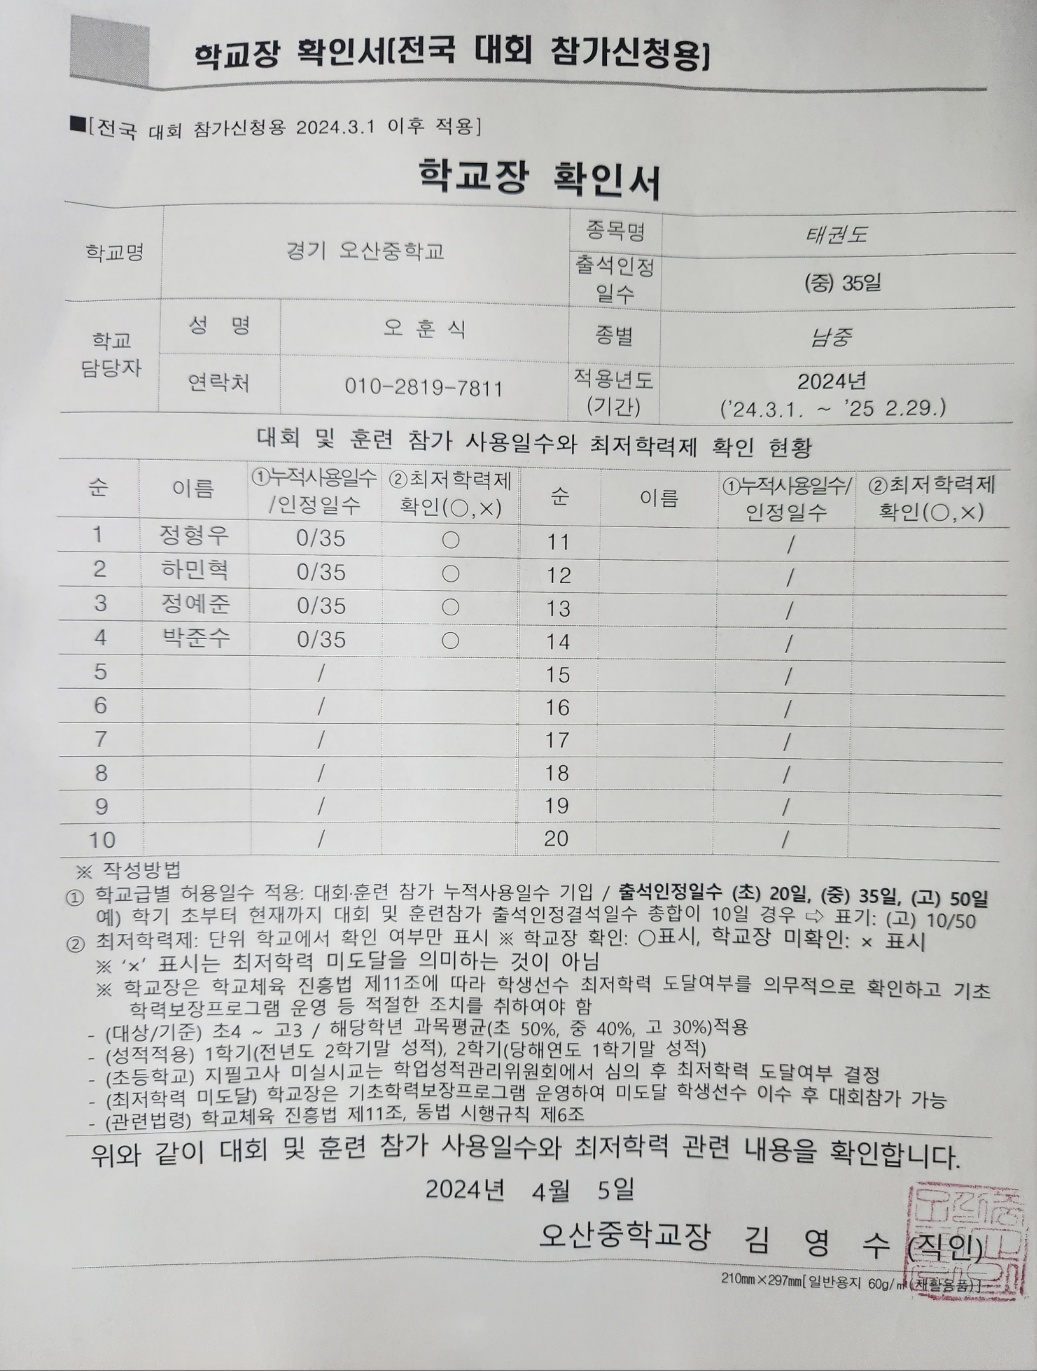 학교장 확인서(전국 대회 참가신청용)
■[전국 대회 참가신청용 2024.3.1 이후 적용]
학교장 확인서
학교명 경기 오산중학교 종목명 태권도
출석인정 일수 (중) 35일
학교 담당자 성 명 오 훈 식 종별 남중
연락처 010-2819-7811 적용년도 (기간) 2024년 ('24.3.1. ~ '25 2.29.)
대회 및 훈련 참가 사용일수와 최저학력제 확인 현황
순 이름 ①누적사용일수/인정일수 ②최저학력제 확인(○,×) 순 이름 ①누적사용일수/인정일수 ②최저학력제 확인(○,×)
1 정형우 0/35 ○ 11 /
2 하민혁 0/35 ○ 12 /
3 정예준 0/35 ○ 13 /
4 박준수 0/35 ○ 14 /
5 / 15 /
6 / 16 /
7 / 17 /
8 / 18 /
9 / 19 /
10 / 20 /
※ 작성방법
① 학교급별 허용일수 적용: 대회·훈련 참가 누적사용일수 기입 / 출석인정일수 (초) 20일, (중) 35일, (고) 50일
예) 학기 초부터 현재까지 대회 및 훈련참가 출석인정결석일수 총합이 10일 경우 ⇨ 표기: (고) 10/50
② 최저학력제: 단위 학교에서 확인 여부만 표시 ※ 학교장 확인: ○표시, 학교장 미확인: × 표시
※ ‘×’ 표시는 최저학력 미도달을 의미하는 것이 아님
※ 학교장은 학교체육 진흥법 제11조에 따라 학생선수 최저학력 도달여부를 의무적으로 확인하고 기초
학력보장프로그램 운영 등 적절한 조치를 취하여야 함
- (대상/기준) 초4 ~ 고3 / 해당학년 과목평균(초 50%, 중 40%, 고 30%)적용
- (성적적용) 1학기(전년도 2학기말 성적), 2학기(당해연도 1학기말 성적)
- (초등학교) 지필고사 미실시교는 학업성적관리위원회에서 심의 후 최저학력 도달여부 결정
- (최저학력 미도달) 학교장은 기초학력보장프로그램 운영하여 미도달 학생선수 이수 후 대회참가 가능
- (관련법령) 학교체육 진흥법 제11조, 동법 시행규칙 제6조
위와 같이 대회 및 훈련 참가 사용일수와 최저학력 관련 내용을 확인합니다.
2024년 4월 5일
오산중학교장 김 영 수 (직인)
210㎜×297㎜[일반용지 60g/㎡(재활용품)]